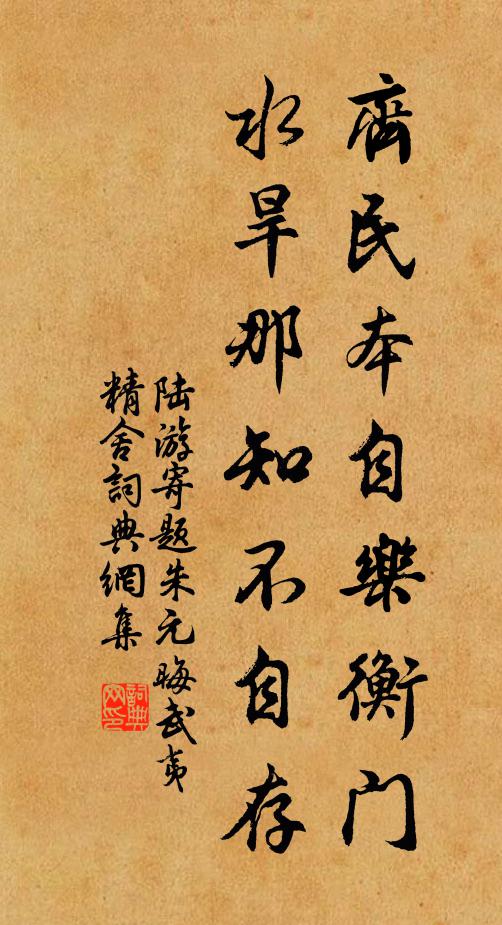 齊民本自樂衡門
水旱那知不自存
陆游寄题朱元晦武夷
精舍詞典網集
詞典网印